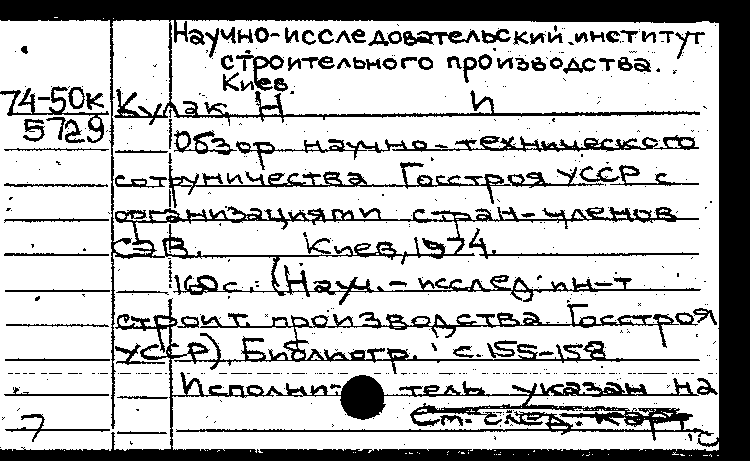 Научно-исследовательский институт
строительного производства.
Киев.
74-50к Кулак, Н И
5729
Обзор научно-технического
сотруничества Госстроя УССР с
организациями стран-членов
СЭВ. Киев, 1974.
160 с. (Науч.-исслед. ин-т
строит. производства Госстроя
УССР). Библиогр.: с. 155-158.
Исполнитель указан на
См. след. карт
7 с